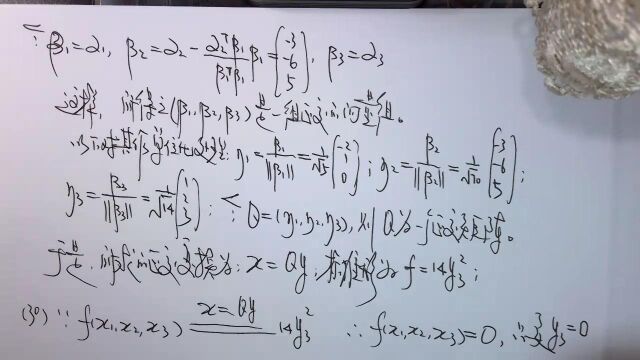 β₁=α₁, β₂=α₂-\frac{α₂ᵀβ₁}{β₁ᵀβ₁}β₁=\begin{pmatrix}-3\\-6\\5\end{pmatrix}, β₃=α₃
(β₁,β₂,β₃)
η₁=\frac{β₁}{||β₁||}=\frac{1}{\sqrt{5}}\begin{pmatrix}-2\\1\\0\end{pmatrix}; η₂=\frac{β₂}{||β₂||}=\frac{1}{\sqrt{70}}\begin{pmatrix}-3\\-6\\5\end{pmatrix};
η₃=\frac{β₃}{||β₃||}=\frac{1}{\sqrt{14}}\begin{pmatrix}1\\2\\3\end{pmatrix}; Q=(η₁,η₂,η₃), 则Q为一个正交矩阵。
于是, 所求的正交变换为: x=Qy, 标准形为 f=14y₃²;
(3°) ∵ f(x₁,x₂,x₃) \xlongequal{x=Qy} 14y₃² ∴ f(x₁,x₂,x₃)=0, y₃=0